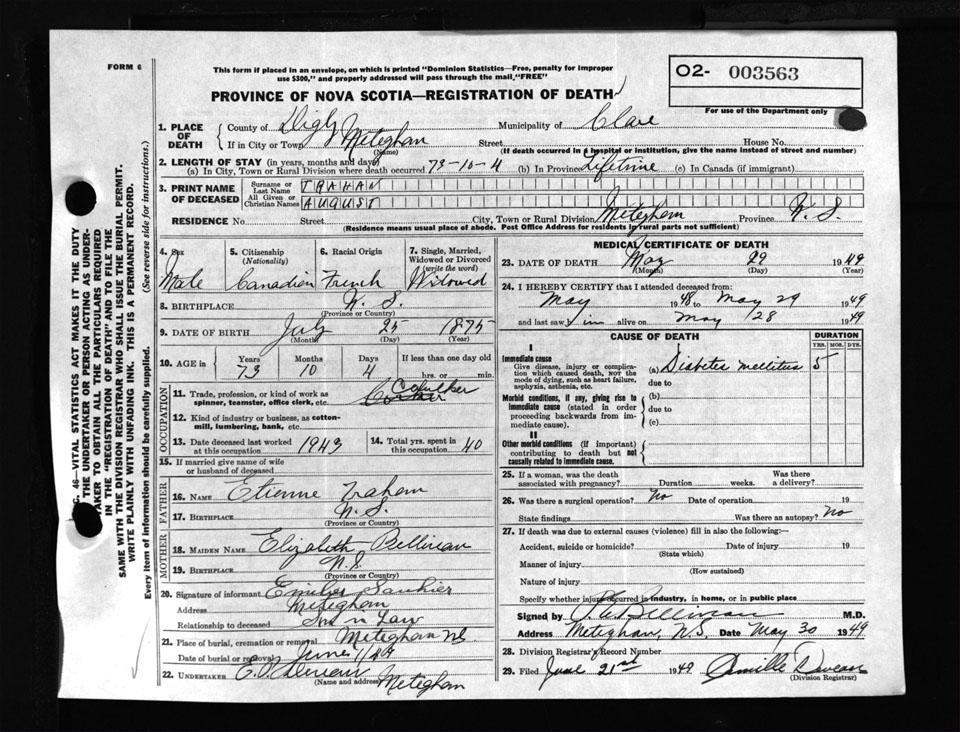 FORM 6
This form if placed in an envelope, on which is printed "Dominion Statistics—Free, penalty for improper
use $300," and properly addressed will pass through the mail "FREE"
O2- 003563
For use of the Department only
PROVINCE OF NOVA SCOTIA—REGISTRATION OF DEATH
1. PLACE OF DEATH
County of Digby Municipality of Clare
If in City or Town Meteghan Street House No.
(Name) (If death occurred in a hospital or institution, give the name instead of street and number)
2. LENGTH OF STAY (in years, months and days)
(a) In City, Town or Rural Division where death occurred 73-10-4 (b) In Province Lifetime (c) In Canada (if immigrant)
3. PRINT NAME OF DECEASED
Surname or Last Name TRAHAN
All Given or Christian Names AUGUST
RESIDENCE No. Street City, Town or Rural Division Meteghan Province N.S.
(Residence means usual place of abode. Post Office Address for residents in rural parts not sufficient)
4. Sex
Male
5. Citizenship
(Nationality)
Canadian
6. Racial Origin
French
7. Single, Married,
Widowed or Divorced
(write the word)
Widowed
8. BIRTHPLACE N.S.
(Province or Country)
9. DATE OF BIRTH July 25 1875
(Month) (Day) (Year)
10. AGE in Years Months Days If less than one day old
73 10 4 hrs. or min.
OCCUPATION
11. Trade, profession, or kind of work as
spinner, teamster, office clerk, etc.
12. Kind of industry or business, as cotton-
mill, lumbering, bank, etc.
13. Date deceased last worked
at this occupation 1943
14. Total yrs. spent in
this occupation 40
15. If married give name of wife
or husband of deceased
FATHER
16. NAME Etienne Trahan
17. BIRTHPLACE N.S.
(Province or Country)
MOTHER
18. MAIDEN NAME Elizabeth Belliveau
19. BIRTHPLACE N.S.
(Province or Country)
20. Signature of informant
Address Meteghan
Relationship to deceased Son in Law
21. Place of burial, cremation or removal Meteghan N.S.
Date of burial or removal June 1/49
22. UNDERTAKER
(Name and address) Meteghan
MEDICAL CERTIFICATE OF DEATH
23. DATE OF DEATH May 29 1949
(Month) (Day) (Year)
24. I HEREBY CERTIFY that I attended deceased from:
May 1948 to May 29 1949
and last saw him alive on May 28 1949
CAUSE OF DEATH
DURATION
YRS. MOS. DYS.
I
Immediate cause
Give disease, injury or complica-
tion which caused death, NOT the
mode of dying, such as heart failure,
asphyxia, asthenia, etc.
(a) Diabetes mellitus 5
due to
Morbid conditions, if any, giving rise to
immediate cause (stated in order
proceeding backwards from im-
mediate cause).
(b)
due to
(c)
II
Other morbid conditions (if important)
contributing to death but not
causally related to immediate cause.
25. If a woman, was the death
associated with pregnancy? Duration weeks. Was there
a delivery?
26. Was there a surgical operation? No Date of operation 19
State findings Was there an autopsy? No
27. If death was due to external causes (violence) fill in also the following:
Accident, suicide or homicide? Date of injury 19
(State which)
Manner of injury
(How sustained)
Nature of injury
Specify whether injury occurred in industry, in home, or in public place
Signed by Belliveau M.D.
Address Meteghan, N.S. Date May 30 1949
28. Division Registrar's Record Number
29. Filed June 21nd 1949 Camille
(Division Registrar)
G. 46—VITAL STATISTICS ACT MAKES IT THE DUTY
OF THE UNDERTAKER OR PERSON ACTING AS UNDER-
TAKER TO OBTAIN ALL THE PARTICULARS REQUIRED
IN THE "REGISTRATION OF DEATH" AND TO FILE THE
SAME WITH THE DIVISION REGISTRAR WHO SHALL ISSUE THE BURIAL PERMIT.
WRITE PLAINLY WITH UNFADING INK. THIS IS A PERMANENT RECORD.
Every item of information should be carefully supplied. (See reverse side for instructions.)